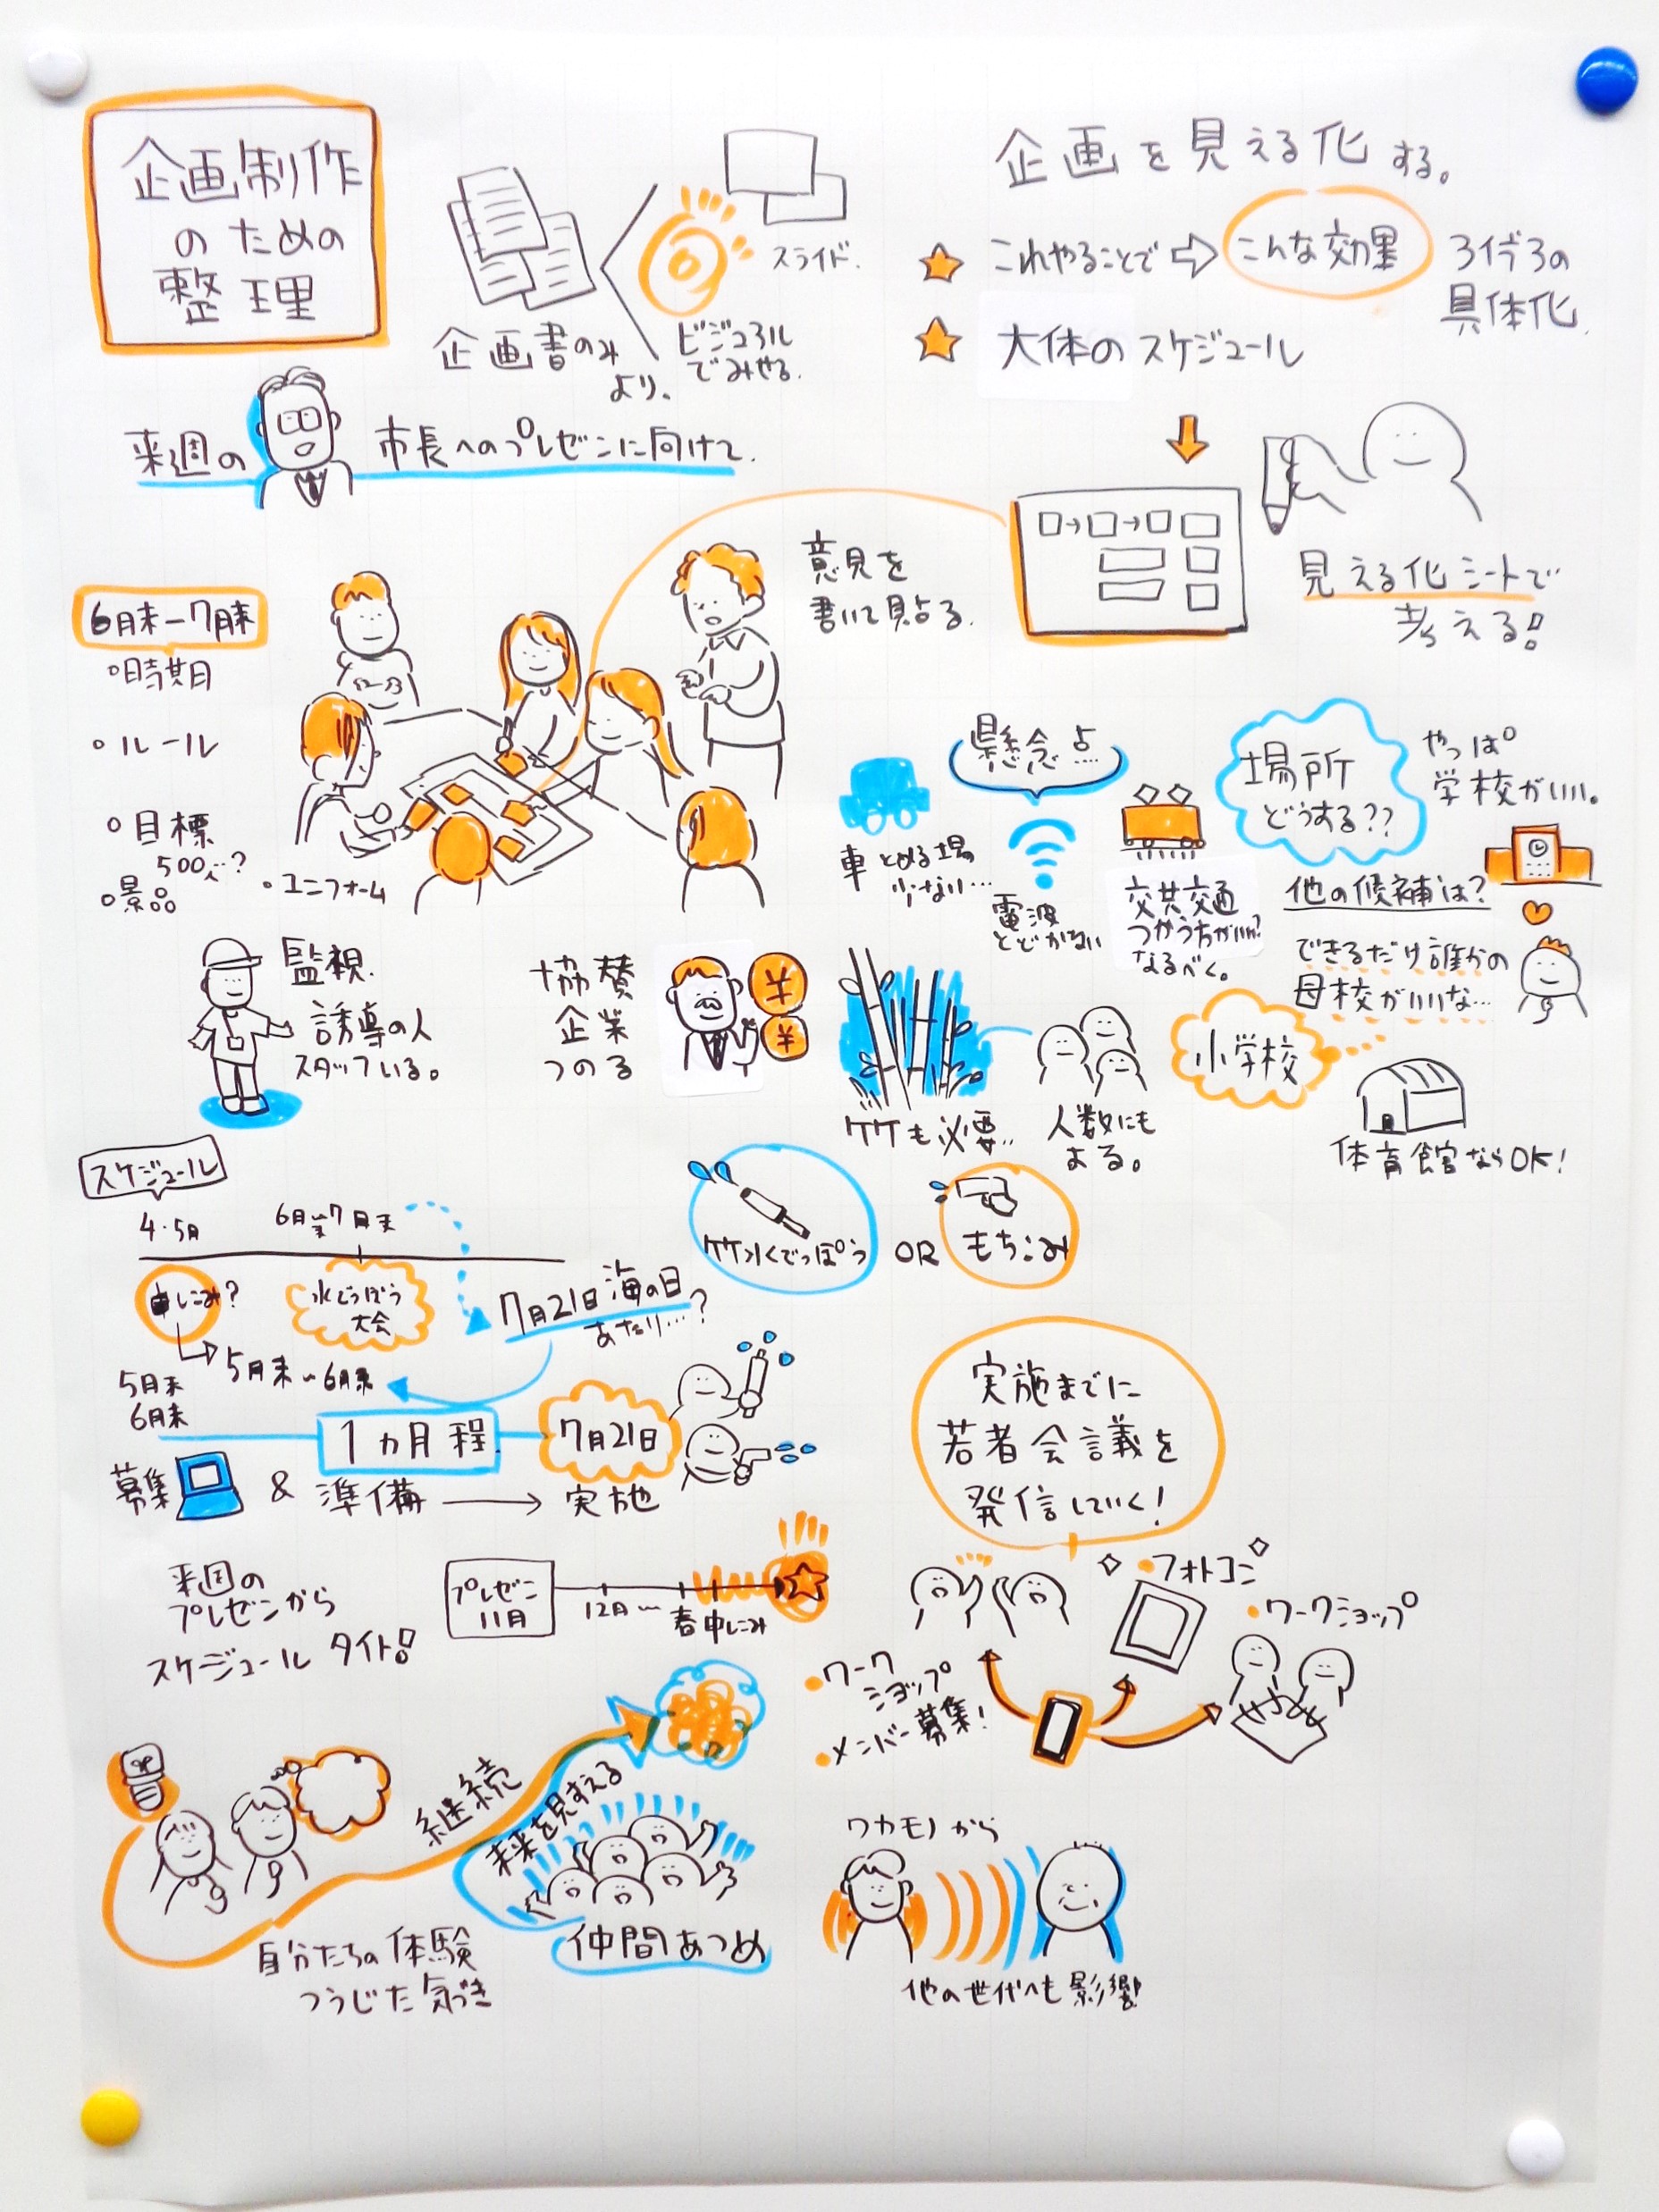 企画制作
のための
整理
企画書のみ
より、
ビジュアル
でみせる.
スライド.
企画を見える化する。
これやることで
こんな効果
大体のスケジュール
具体化
来週の
市長へのプレゼンに向けて.
意見を
書いて貼る.
見える化シートで
考える!
6月末-7月末
・時期
・ルール
・目標
500人…?
・景品
・ユニフォーム
監視.
誘導の人
スタッフいる。
協賛
企業
つのる
¥
¥
懸念点…
車とめる場
少ない…
電波
とどかない
交共交通
つかう方がいい?
なるべく。
場所
どうする??
やっぱ
学校がいい。
他の候補は?
できるだけ誰かの
母校がいいな…
小学校
体育館ならOK!
ケケも必要…
人数にも
よる。
ケケ水でっぽう
OR
もちこみ
スケジュール
4・5月
6月末~7月末
申しこみ?
水でっぽう
大会
7月21日海の日
あたり…?
5月末~6月末
5月末
6月末
1ヵ月程
7月21日
募集
&
準備
実施
実施までに
若者会議を
発信していく!
来週の
プレゼンから
スケジュールタイト!
プレゼン
11月
12月~
春申しこみ
・フォトコン
・ワークショップ
・ワーク
ショップ
・メンバー募集!
継続
未来を見すえる
仲間あつめ
自分たちの体験
つうじた気づき
ワカモノから
他の世代へも影響